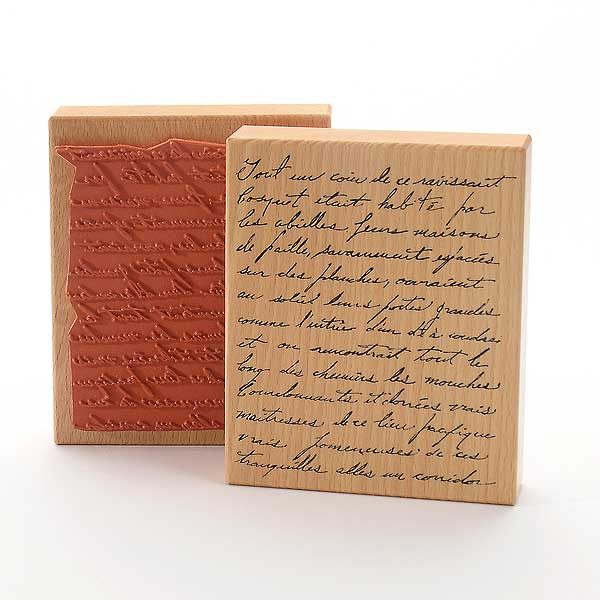 Tout un coin de ce ravissant
bosquet etait habité par
les abielles. Leurs maisons
de paille, savamment espacées
sur des planches, ouvraient
au soleil leurs portes grandes
comme l'entrée d'un dé à coudre,
et on rencontrait tout le
long des chemins les mouches
bourdonnantes et dorées vrais
maitresses de ce lieu pacifique
vrais promeneuses de ces
tranquilles allés en corridor